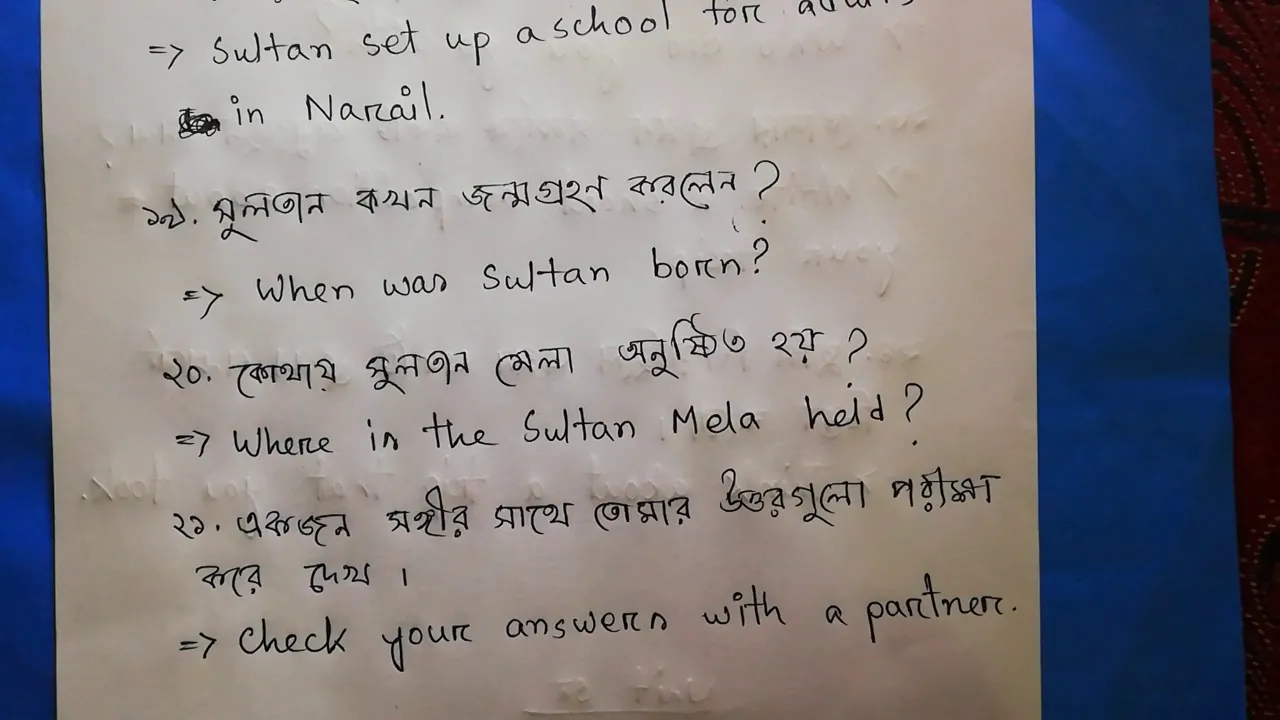 => Sultan set up a school for
in Narail.
১৯. সুলতান কখন জন্মগ্রহন করলেন?
=> When was Sultan born?
২০. কোথায় সুলতান মেলা অনুষ্ঠিত হয়?
=> Where is the Sultan Mela held?
২১. একজন সঙ্গীর সাথে তোমার উত্তরগুলো পরীক্ষা
করে দেখ।
=> Check your answers with a partner.